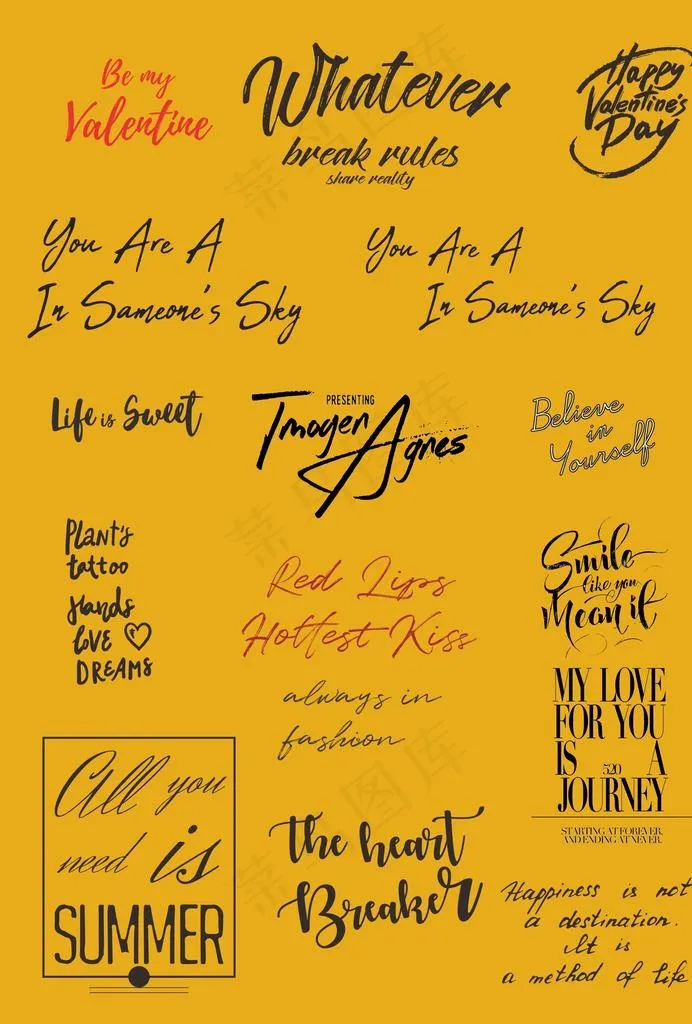 Be my
Valentine
Whatever
break rules
share reality
Happy
Valentine's
Day
You Are A
In Sameone's Sky
You Are A
In Sameone's Sky
Life is Sweet
PRESENTING
Imogen
Agnes
Believe
in
Yourself
Plant's
tattoo
Hands
love
DREAMS
Smile
like you
Mean it
Red Lips
Hottest Kiss
always in
fashion
MY LOVE
FOR YOU
IS 520 A
JOURNEY
STARTING AT FOREVER,
AND ENDING AT NEVER.
All you
need is
SUMMER
the heart
Breaker
Happiness is not
a destination.
It is
a method of life
菜鸟图库
菜鸟图库
菜鸟图库